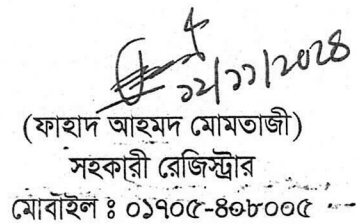 ১২/১১/২০২৪
(ফাহাদ আহমদ মোমতাজী)
সহকারী রেজিস্ট্রার
মোবাইল ঃ ০১৭০৫-৪০৮০০৫